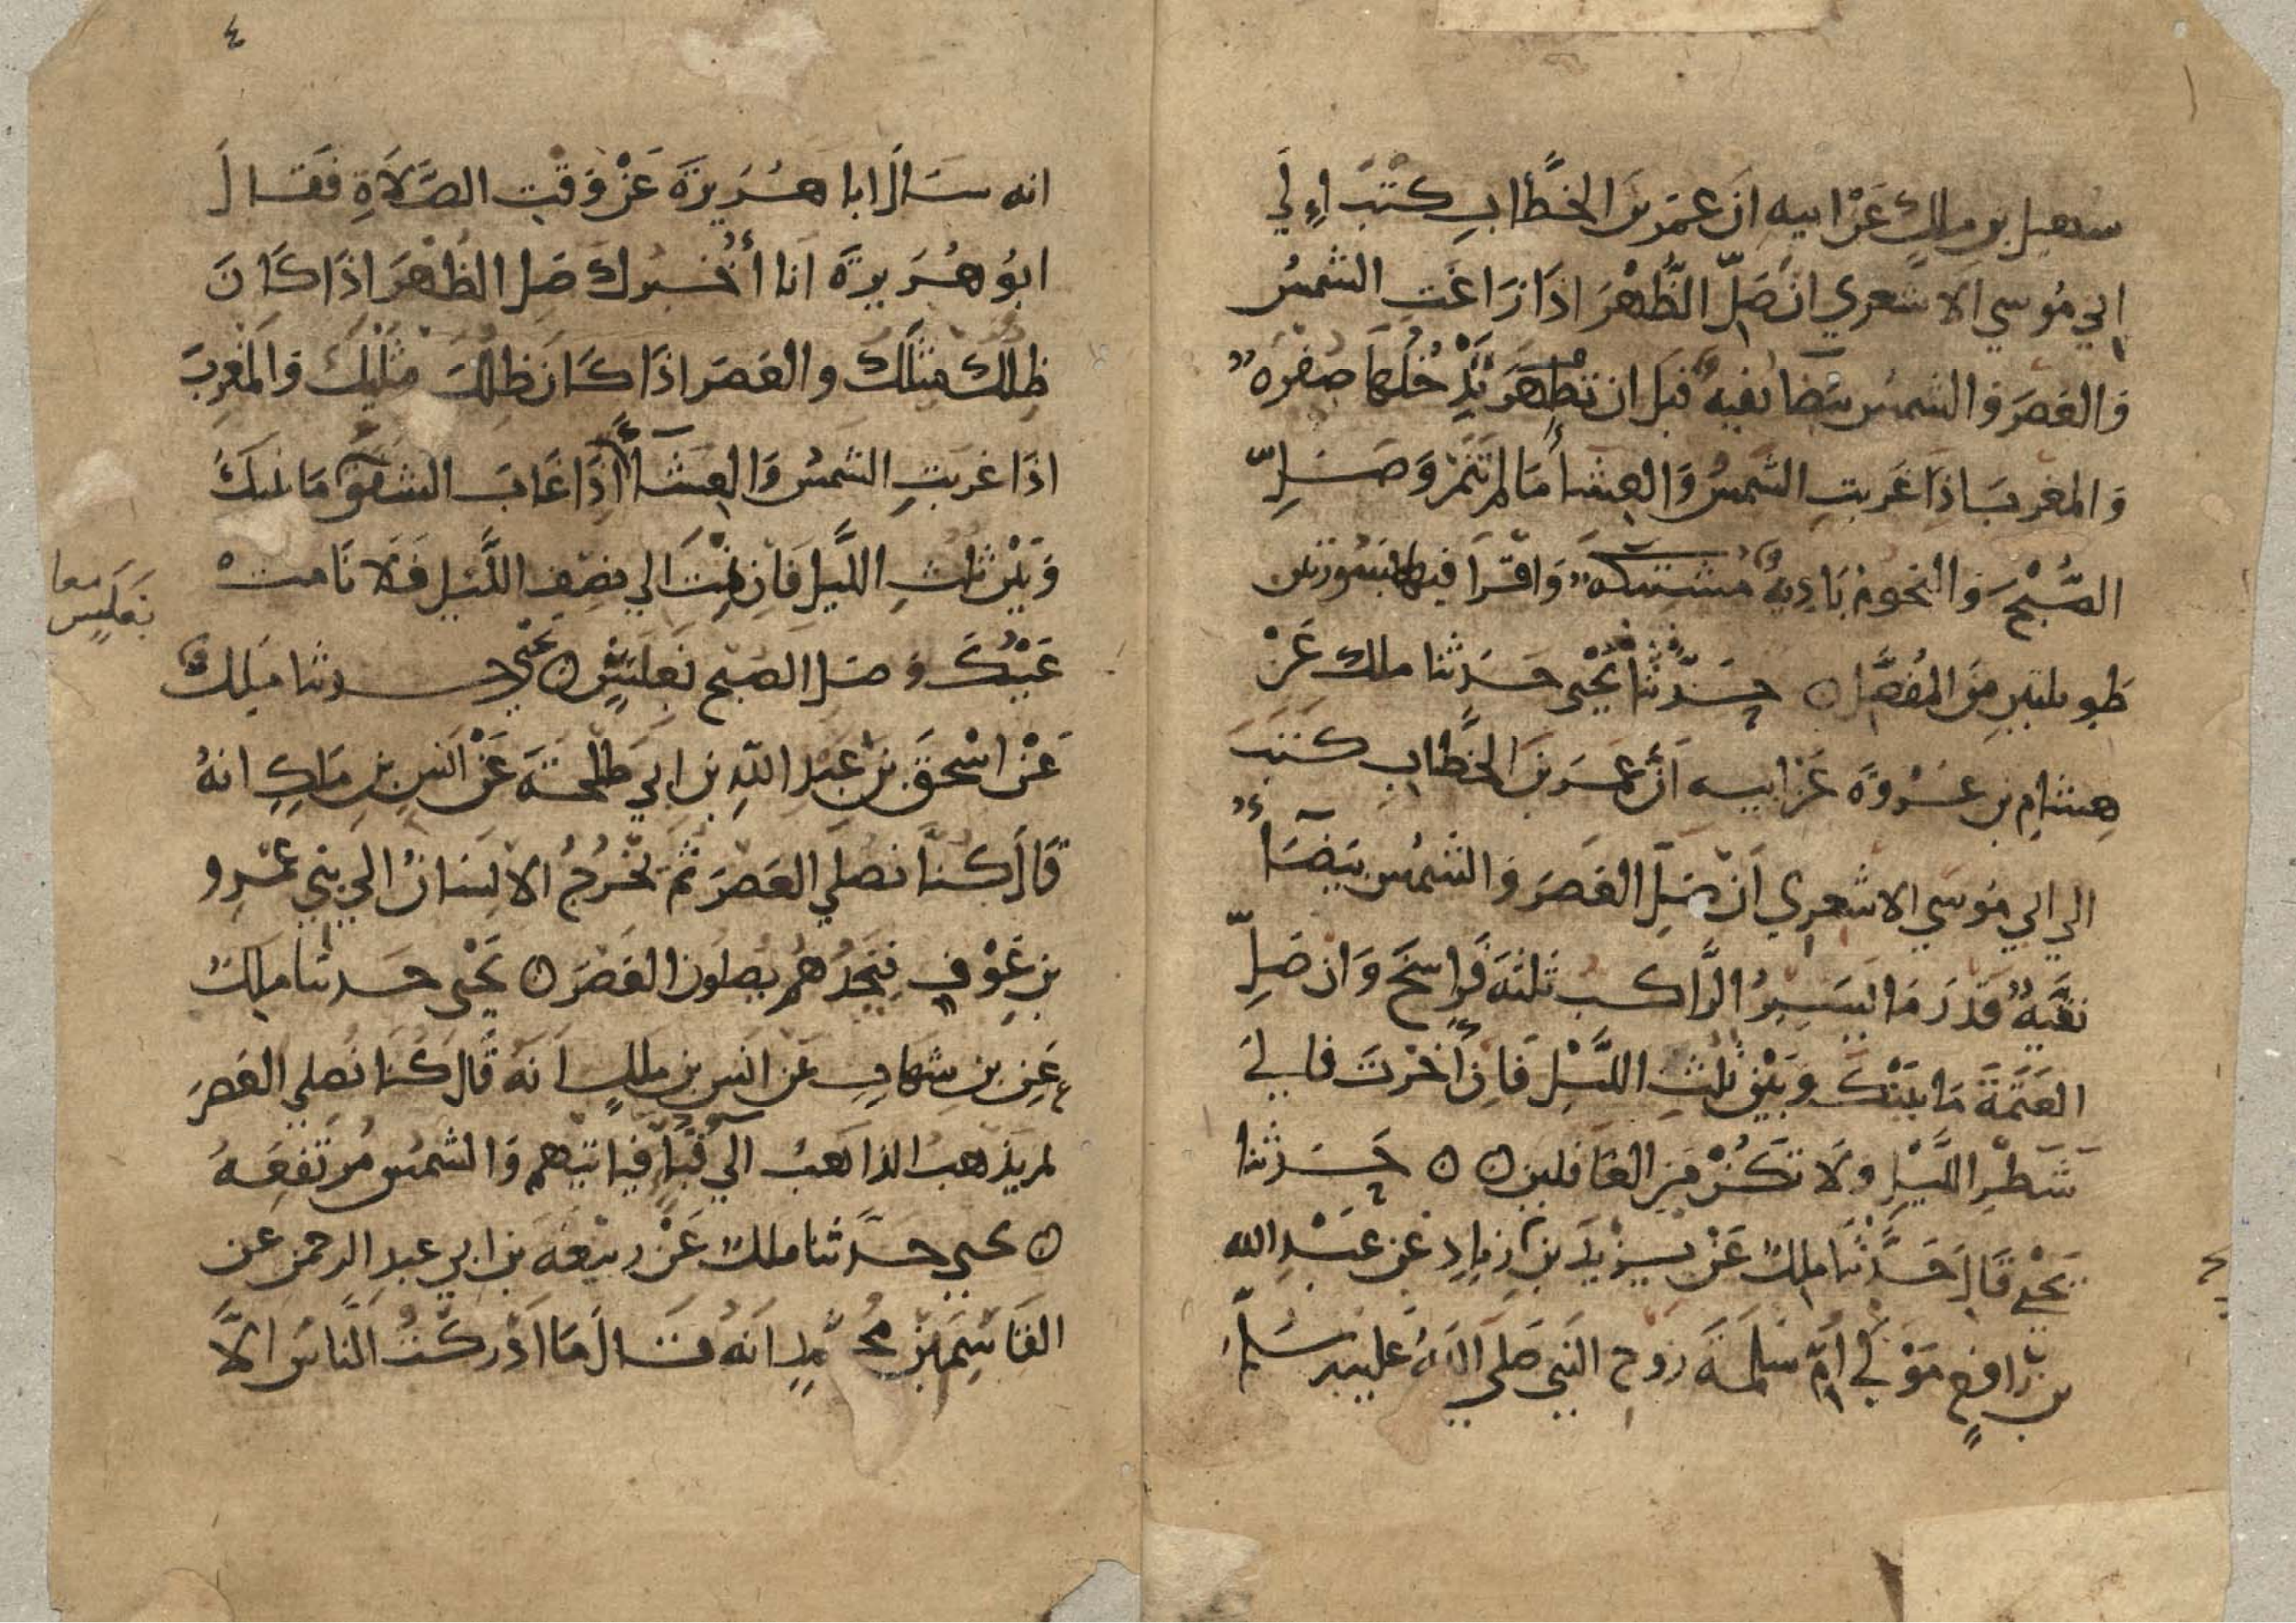 سهيل بن ملك عَنْ ابيه انَ عمَر بنَ الخطَّاب كتبَ اِلي
ابي مُوسي الاشعري ان صَلّ الظُّهْرَ اذَا زَاغَتِ الشمسُ
وَالعَصَر وَالشمسُ بَيضا نقيهٌ قبَل ان تدْخلهَا صفرهٌ
وَالمغربَ اذَا غَربتِ الشَّمسُ وَالعِشاءَ مَا لم تَنَمْ وَصَلِّ
الصُّبْحَ وَالنجومُ بَادِيهٌ مشتبكهٌ وَاقْرَا فيها بسُورتين
طَويلتين مِنَ المُفصَّل ه حَدَّثنا يَحْيى حَدَثنا ملك عَنْ
هِشامِ بن عُرْوَةَ عَن ابيه اَنَّ عُمَر بنَ الخطَّاب كتبَ
الي ابي مُوسَي الاشعرِي اَنْ صَلِّ العَصَرَ وَالشمسُ بَيضَآءُ
نقيَّهٌ قَدَر مَا يَسِيرُ الرَّاكبُ ثلثةَ فَراسِخَ وَان صَلِّ
العَتَمَةَ مَا بَيْنكَ وَبَيْنَ ثلثِ اللَّيْلِ فَاِن أَخرْتَ فالي
شَطْرِ اللَّيْلِ وَلَا تَكُنْ مِنَ الغافلين ه ه حَدَثنا
يَحْي قَالَ حَدَّثنا ملكٌ عَنْ يَزيْدَ بْن زِيَادٍ عَن عَبْدِ الله
بن رَافعٍ مَوْلي اُمّ سَلَمَةَ زوج النَبي صَلي اللهُ عليه وسَلّم
٤
انه سَاَلَ ابا هُرَيرَةَ عَنْ وَقتِ الصَّلَاةِ فَقَالَ
ابُو هُرَيرَةَ انا أُخْبرُكَ صَل الظُهْرَ اذَا كَانَ
ظِلُّك مثلَكَ وَالعَصَر اذَا كَانَ ظِلُّكَ مثلَيْكَ وَالمغْرِبَ
اذَا غربَتِ الشمسُ وَالعِشَآءَ اِذَا غابَ الشفقُ مَا بينكَ
وَبَيْنَ ثلثِ اللَّيلِ فَاِنْ نِمْتَ الي نصفِ اللَّيْلِ فَلَا نَامت
عَيْنُكَ وَصَل الصبح بَغلَسٍ ه يَحْيي حدثنا مَلكٌ
بَغَلَسٍ معا
عَنْ اسْحقَ بن عَبْدِ اللَّهِ بن ابي طَلْحَةَ عَنْ انَسِ بنِ مَالكٍ انهُ
قَالَ كنَّا نصَلي العَصَر ثُمَ يَخْرُجُ الانْسَانُ الي بَني عَمْرِو
بن عَوْفٍ فيَجدُهُم يُصلون العَصَر ه يَحْيى حَدثنا ملكٌ
عَن بن شِهَابٍ عَن انَسِ بن ملكٍ اَنَهُ قَالَ كُنا نُصَلي العَصَر
ثم يذهبُ الذاهبُ الي قُبآءٍ فياتيهم وَالشمسُ مُرتَفِعَهٌ
ه يحيي حَدَّثنا ملكٌ عَنْ ربيْعَةَ بن ابي عبدِ الرحمن عن
القَاسِم بن محُمَّدٍ انَهُ قَالَ مَا ادْركتُ النَّاسَ الَّا